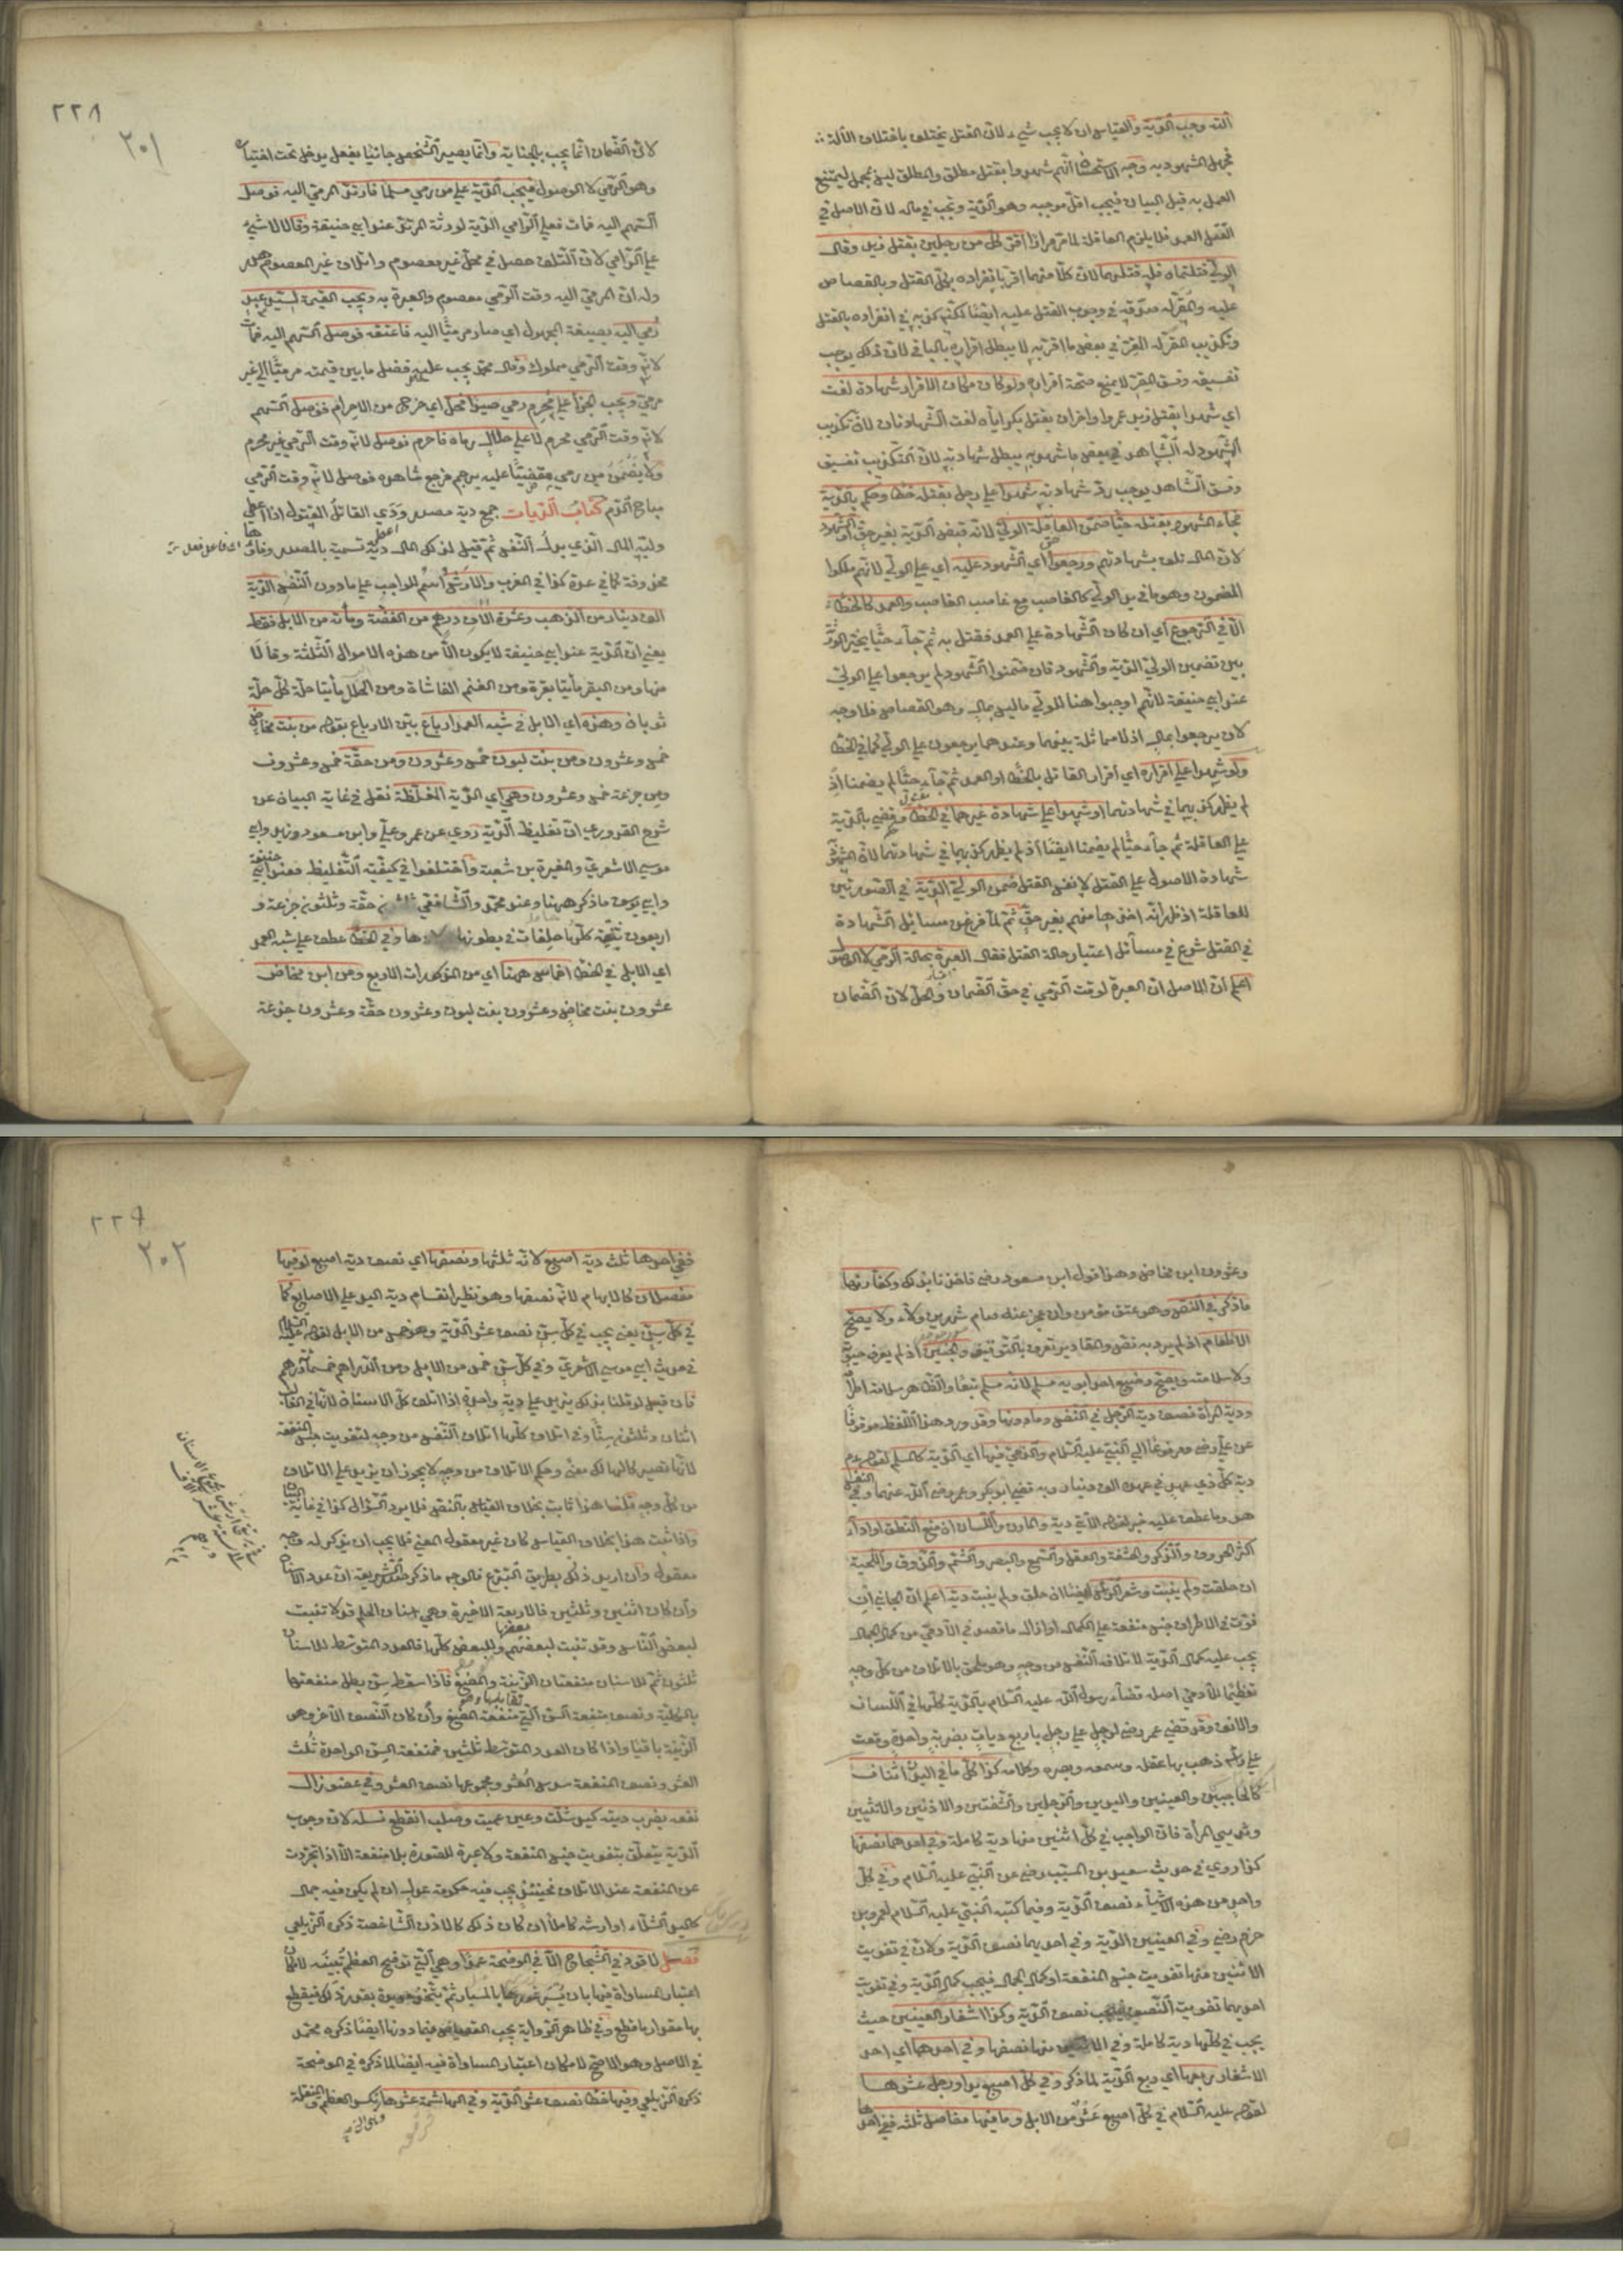 آلته وجب الدّية والقياس ان لا يجب شيء لانّ القتل يختلف باختلاف الآلة
فجهل المشهود به وجه الاستحسان انّهم شهدوا بقتل مطلق والمطلق ليس بمجمل ليمتنع
العمل به قبل البيان فيجب اقلّ موجبه وهو الدّية وتجب في ماله لانّ الاصل في
القتل العمد فلا يلزم العاقلة لما مرّ وان اقرّ كلّ من رجلين بقتل زيد وقال
الوليّ قتلتماه فله قتلهما لانّ كلّا منهما اقرّ بانفراده بكلّ القتل وبالقصاص
عليه والمقرّ له صدّقه في وجوب القتل عليه ايضا لكنّه كذّبه في انفراده بالقتل
وتكذيب المقرّ له المقرّ في بعض ما اقرّ به لا يبطل اقراره بالباقي لانّ ذلك يوجب
تفسيقه وفسق المقرّ لا يمنع صحّة اقراره ولو كان مكان الاقرار شهادة لغت
اي شهدا بقتل زيد عمروا واخران بقتل بكر ايّاه لغت الشّهادتان لانّ تكذيب
المشهود له الشّاهد في بعض ما شهد به يبطل شهادته لانّ التّكذيب تفسيق
وفسق الشّاهد يوجب ردّ شهادته شهدا على رجل بقتله خطأ وحكم بالدّية
فجاء المشهود بقتله حيّا ضمّن العاقلة الوليّ لانّه قبض الدّية بغير حقّ او الشّهود
لانّ المال تلف بشهادتهم ورجعوا اي الشّهود عليه اي على الوليّ لانّهم ملكوا
المضمون وهو ما في يد الوليّ كالغاصب مع غاصب الغاصب والعمد كالخطأ
الّا في الرّجوع اي ان كان الشّهادة على العمد فقتل به ثمّ جاء حيّا يخيّر الورثة
بين تضمين الوليّ الدّية والشّهود فان ضمّنوا الشّهود لم يرجعوا على الوليّ
عند ابي حنيفة لانّهم اوجبوا هنا للوليّ ما ليس بمال وهو القصاص فلا وجه
لان يرجعوا بمال اذ لا مماثلة بينهما وعندهما يرجعون على الوليّ كما في الخطأ
ولو شهدا على اقراره اي اقرار القاتل بالخطأ او العمد ثمّ جاء حيّا لم يضمنا اذ
لم يظهر كذبهما في شهادتهما او شهدا على شهادة غيرهما في الخطأ وقضي بالدّية
على العاقلة ثمّ جاء حيّا لم يضمنا ايضا اذ لم يظهر كذبهما في شهادتهما لانّ المشهود
شهادة الاصول على القتل لا نفس القتل ضمن الوليّ الدّية في الصّورتين
للعاقلة اذ ظهر انّه اخذها منهم بغير حقّ ثمّ لمّا فرغ من مسائل الشّهادة
في القتل شرع في مسائل اعتبار حالة القتل فقال العبرة بحالة الرّمي لا الوصول
اعلم انّ الاصل ان العبرة لوقت الرّمي في حقّ الضّمان والحلّ لانّ الضّمان
٢٢٨
٢٠١
لانّ الضّمان انّما يجب بالجناية وانّما يصير الشّخص جانيا بفعل يدخل تحت اختياره
وهو الرّمي لا الوصول فيجب الدّية على من رمى مسلما فارتدّ المرميّ اليه فوصل
السّهم اليه فمات فعلى الرّامي الدّية لورثة المرتدّ عند ابي حنيفة وقالا لا شيء
على الرّامي لانّ التّلف حصل في محلّ غير معصوم واتلاف غير المعصوم هدر
وله انّ المرميّ اليه وقت الرّمي معصوم والعبرة به ويجب القيمة لسيّد عبد
رُمي اليه بصيغة المجهول اي صار مرميّا اليه فاعتقه فوصل السّهم اليه فمات
لانّه وقت الرّمي مملوك وقال محمّد يجب عليه فضل ما بين قيمته مرميّا الى غير
مرميّ ويجب الجزاء على محرم رمى صيدا فحلّ اي خرج من الاحرام فوصل السّهم
لانّه وقت الرّمي محرم لا على حلال رماه فاحرم فوصل لانّه وقت الرّمي غير محرم
ولا يضمن من رمى مقضيّا عليه برجم فرجع شاهده فوصل لانّه وقت الرّمي
مباح الدّم كتاب الدّيات جمع دية مصدر ودي القاتل المقتول اذا اعطى
وليّه المال الّذي بدل النّفس ثمّ قيل لذلك المال دية تسمية بالمصدر وفاؤها
محذوفة كما في عدة كذا في المغرب والارش اسم للواجب على ما دون النّفس الدّية
الف دينار من الذّهب وعشرة الاف درهم من الفضّة ومائة من الابل فقط
يعني انّ الدّية عند ابي حنيفة لا يكون الّا من هذه الاموال الثّلثة وقالا
منها ومن البقر مأيتا بقرة ومن الغنم الفا شاة ومن الحلل مأيتا حلّة كلّ حلّة
ثوبان وهذه اي الابل في شبه العمد ارباع بيّن الارباع بقوله من بنت مخاض
خمس وعشرون ومن بنت لبون خمس وعشرون ومن حقّة خمس وعشرون
ومن جذعة خمس وعشرون وهي اي الدّية المغلّظة نقل في غاية البيان عن
شرح القدوري انّ تغليظ الدّية روي عن عمر وعليّ وابن مسعود وزيد وابي
موسى الاشعريّ والمغيرة بن شعبة واختلفوا في كيفيّة التّغليظ فعند ابي حنيفة
وابي يوسف ما ذكر ههنا وعند محمّد والشّافعي ثلثون حقّة وثلثون جذعة و
اربعون ثنيّة كلّها خلفات في بطونها اولادها وفي الخطأ عطف على شبه العمد
اي الابل في الخطأ اخماس ههنا اي من المذكورات الاربع ومن ابن مخاض
عشرون بنت مخاض وعشرون بنت لبون وعشرون حقّة وعشرون جذعة
وعشرون ابن مخاض وهذا قول ابن مسعود رضي فاخذنا بذلك وكفّارتها
ما ذكر في النّص وهو عتق مؤمن وان عجز عنه صام شهرين ولاء ولا يصحّ
الاطعام اذ لم يرد به نصّ والمقادير تعرف بالتّوقيف والجنين اذ لم يعرف حيوته
ولا سلامته ويصحّ رضيع احد ابويه مسلم لانّه مسلم تبعا والظّاهر سلامة اطرافه
ودية المرأة نصف دية الرّجل في النّفس وما دونها وقد ورد هذا اللّفظ موقوفا
عن عليّ رضي ومرفوعا الى النّبي عليه السّلام والذّمّيّ فيها اي الدّية كالمسلم لقوله ع م
دية كلّ ذي عهد في عهده الف دينار وبه قضى ابو بكر وعمر رضي اللّه عنهما وفي النّفس
هذا وما عطف عليه خبر لقوله الآتي دية والمارن واللّسان ان منع النّطق او اداء
اكثر الحروف والذّكر والحشفة والعقل والسّمع والبصر والشّمّ والذّوق واللّحية
ان حلقت ولم ينبت وشعر الرّأس ايضا ان حلق ولم ينبت دية اعلم انّ الجاني ان
فوّت في الاطراف جنس منفعة على الكمال او ازال ما قصد في الآدميّ من كمال الجمال
يجب عليه كمال الدّية لاتلافه النّفس من وجه وهو ملحق بالاتلاف من كلّ وجه
تعظيما للآدميّ اصله قضاء رسول اللّه عليه السّلام بالدّية كلّها في اللّسان
والانف وقد قضى عمر رضي لرجل على رجل باربع ديات بضربة واحدة وقعت
على رأسه ذهب بها عقله وسمعه وبصره وكلامه كذا كلّ ما في البدن اثنان
كالحاجبين والعينين واليدين والرّجلين والشّفتين والاذنين والانثيين
وثديي المرأة فانّ الواجب في كلّ اثنين منها دية كاملة وفي احدهما نصفها
كذا روي في حديث سعيد بن المسيّب رضي عن النّبيّ عليه السّلام وفي كلّ
واحد من هذه الاشياء نصف الدّية وفيما كتبه النّبيّ عليه السّلام لعمرو بن
حزم رضي وفي العينين الدّية وفي احديهما نصف الدّية ولانّ في تفويت
الاثنين منها تفويت جنس المنفعة او كمال الجمال فيجب كمال الدّية وفي تفويت
احديهما تفويت النّصف فيجب نصف الدّية وكذا اشفار العينين حيث
يجب في كلّها دية كاملة وفي الاثنين منها نصفها وفي احدها اي احد
الاشفار ربعها اي ربع الدّية لما ذكر وفي كلّ اصبع يد او رجل عشرها
لقوله عليه السّلام في كلّ اصبع عشر من الابل وما فيها مفاصل ثلثه ففي احدها
٢٢٩
٢٠٢
ففي احدها ثلث دية اصبع لانّه ثلثها ونصفها اي نصف دية اصبع لو فيها
مفصلان كالابهام لانّه نصفها وهو نظير انقسام دية اليد على الاصابع كما
في كلّ سنّ يعني يجب في كلّ سنّ نصف عشر الدّية وهو خمس من الابل لقوله عليه السّلام
في حديث ابي موسى الاشعريّ وفي كلّ سنّ خمس من الابل ومن الدّراهم خمسمأة درهم
فان قيل لو قلنا بذلك يزيد على دية واحدة اذا اتلف كلّ الاسنان لانّها في الغالب
اثنان وثلثون سنّا وفي اتلاف كلّها اتلاف النّفس من وجه لتفويت جنس المنفعة
لانّها تصير كالهالك معنى وحكم الاتلاف من وجه لا يجوز ان يزيد على الاتلاف
من كلّ وجه قلنا هذا ثابت بخلاف القياس بالنّص فلا يرد السّؤال كذا في غاية البيان
واذا ثبت هذا بخلاف القياس كان غير معقول المعنى فلا يجب ان يذكر له وجه
معقول وان اريد ذلك بطريق التّبرّع فالوجه ما ذكر صدر الشّريعة انّ عدد الاسنان
وان كان اثنين وثلثين فالاربعة الاخيرة وهي اسنان الحلم قد لا تنبت
لبعض النّاس وقد تنبت لبعضهم بعضها وللبعض كلّها فالعدد المتوسّط للاسنان
ثلثون ثمّ للاسنان منفعتان الزّينة والمضغ فاذا سقط سنّ بطل منفعتها
بالكلّيّة ونصف منفعة السّنّ الّتي تقابلها وهي منفعة المضغ وان كان النّصف الآخر وهو
الزّينة باقيا واذا كان العدد المتوسّط ثلثين فمنفعة السّنّ الواحدة ثلث
العشر ونصف المنفعة سدس العشر ومجموعها نصف العشر وفي عضو زال
نفعه بضرب ديته كيد شلّت وعين عميت وصلب انقطع نسله لانّ وجوب
الدّية يتعلّق بتفويت جنس المنفعة ولا عبرة للصّورة بلا منفعة الّا اذا تجرّدت
عن المنفعة عند الاتلاف فحينئذ يجب فيه حكومة عدل ان لم يكن فيه جمال
كاليد الشّلّاء او ارشه كاملا ان كان ذلك كالاذن الشّاخصة ذكره الزّيلعي
فصل لا قود في الشّجاج الّا في الموضحة عمدا وهي الّتي توضح العظم تبيّنه لامكان
اعتبار المساواة فيها بان يسبر غورها بالمسبار ثمّ يتّخذ حديدة بقدر ذلك فيقطع
بها مقدار ما قطع وفي ظاهر الرّواية يجب القصاص فيما دونها ايضا ذكره محمّد
في الاصل وهو الاصحّ لامكان اعتبار المساواة فيه ايضا لما ذكر في الموضحة
ذكره الزّيلعي وفيها خطأ نصف عشر الدّية وفي الهاشمة عشرها تكسر العظم والمنقلة